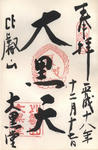 奉拝
平成十八年
十二月十二日
大黒天
比叡山
大黒堂